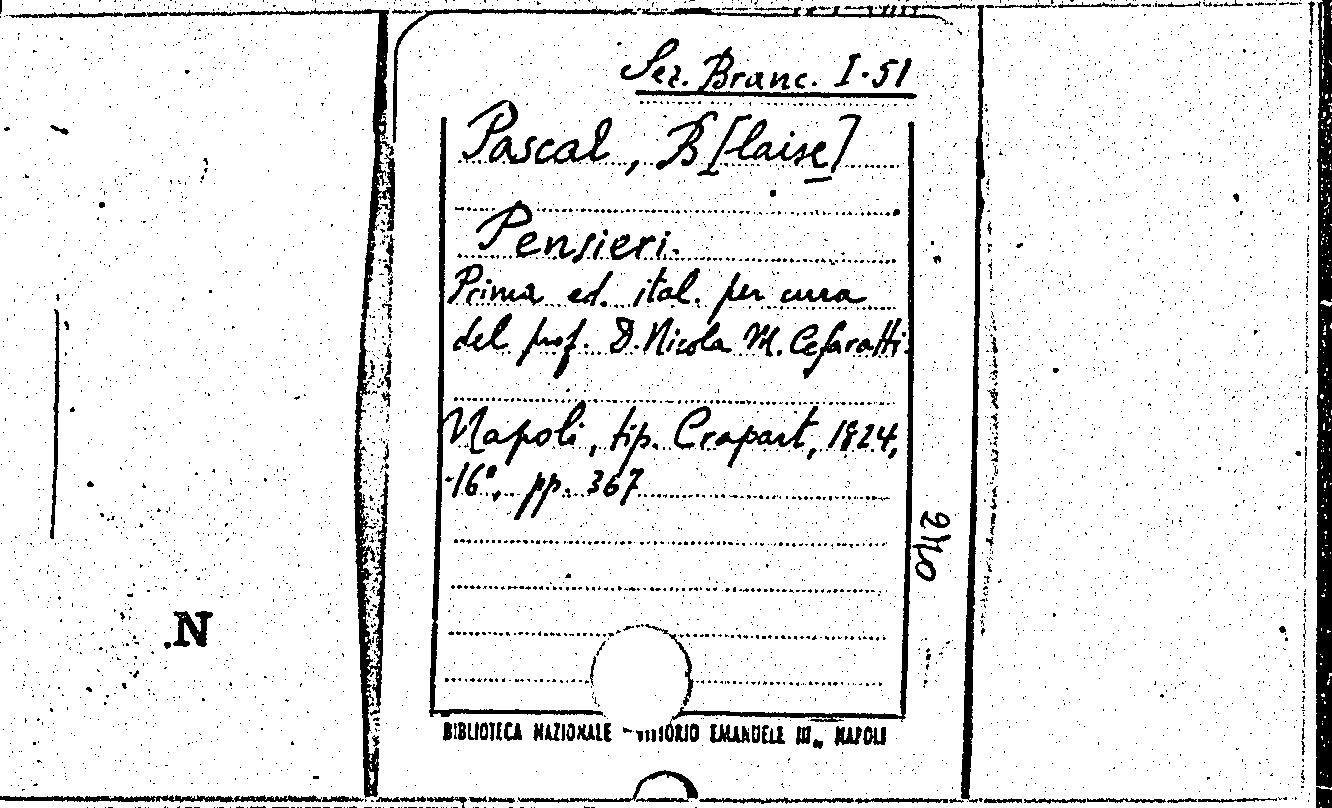 Sez. Branc. I·51
Pascal, B[laise]
Pensieri.
Prima ed. ital. per cura
del prof. D. Nicola M. Cefaratti.
Napoli, tip. Crapart, 1824,
16°, pp. 367
BIBLIOTECA NAZIONALE - VITTORIO EMANUELE III„ NAPOLI
.N